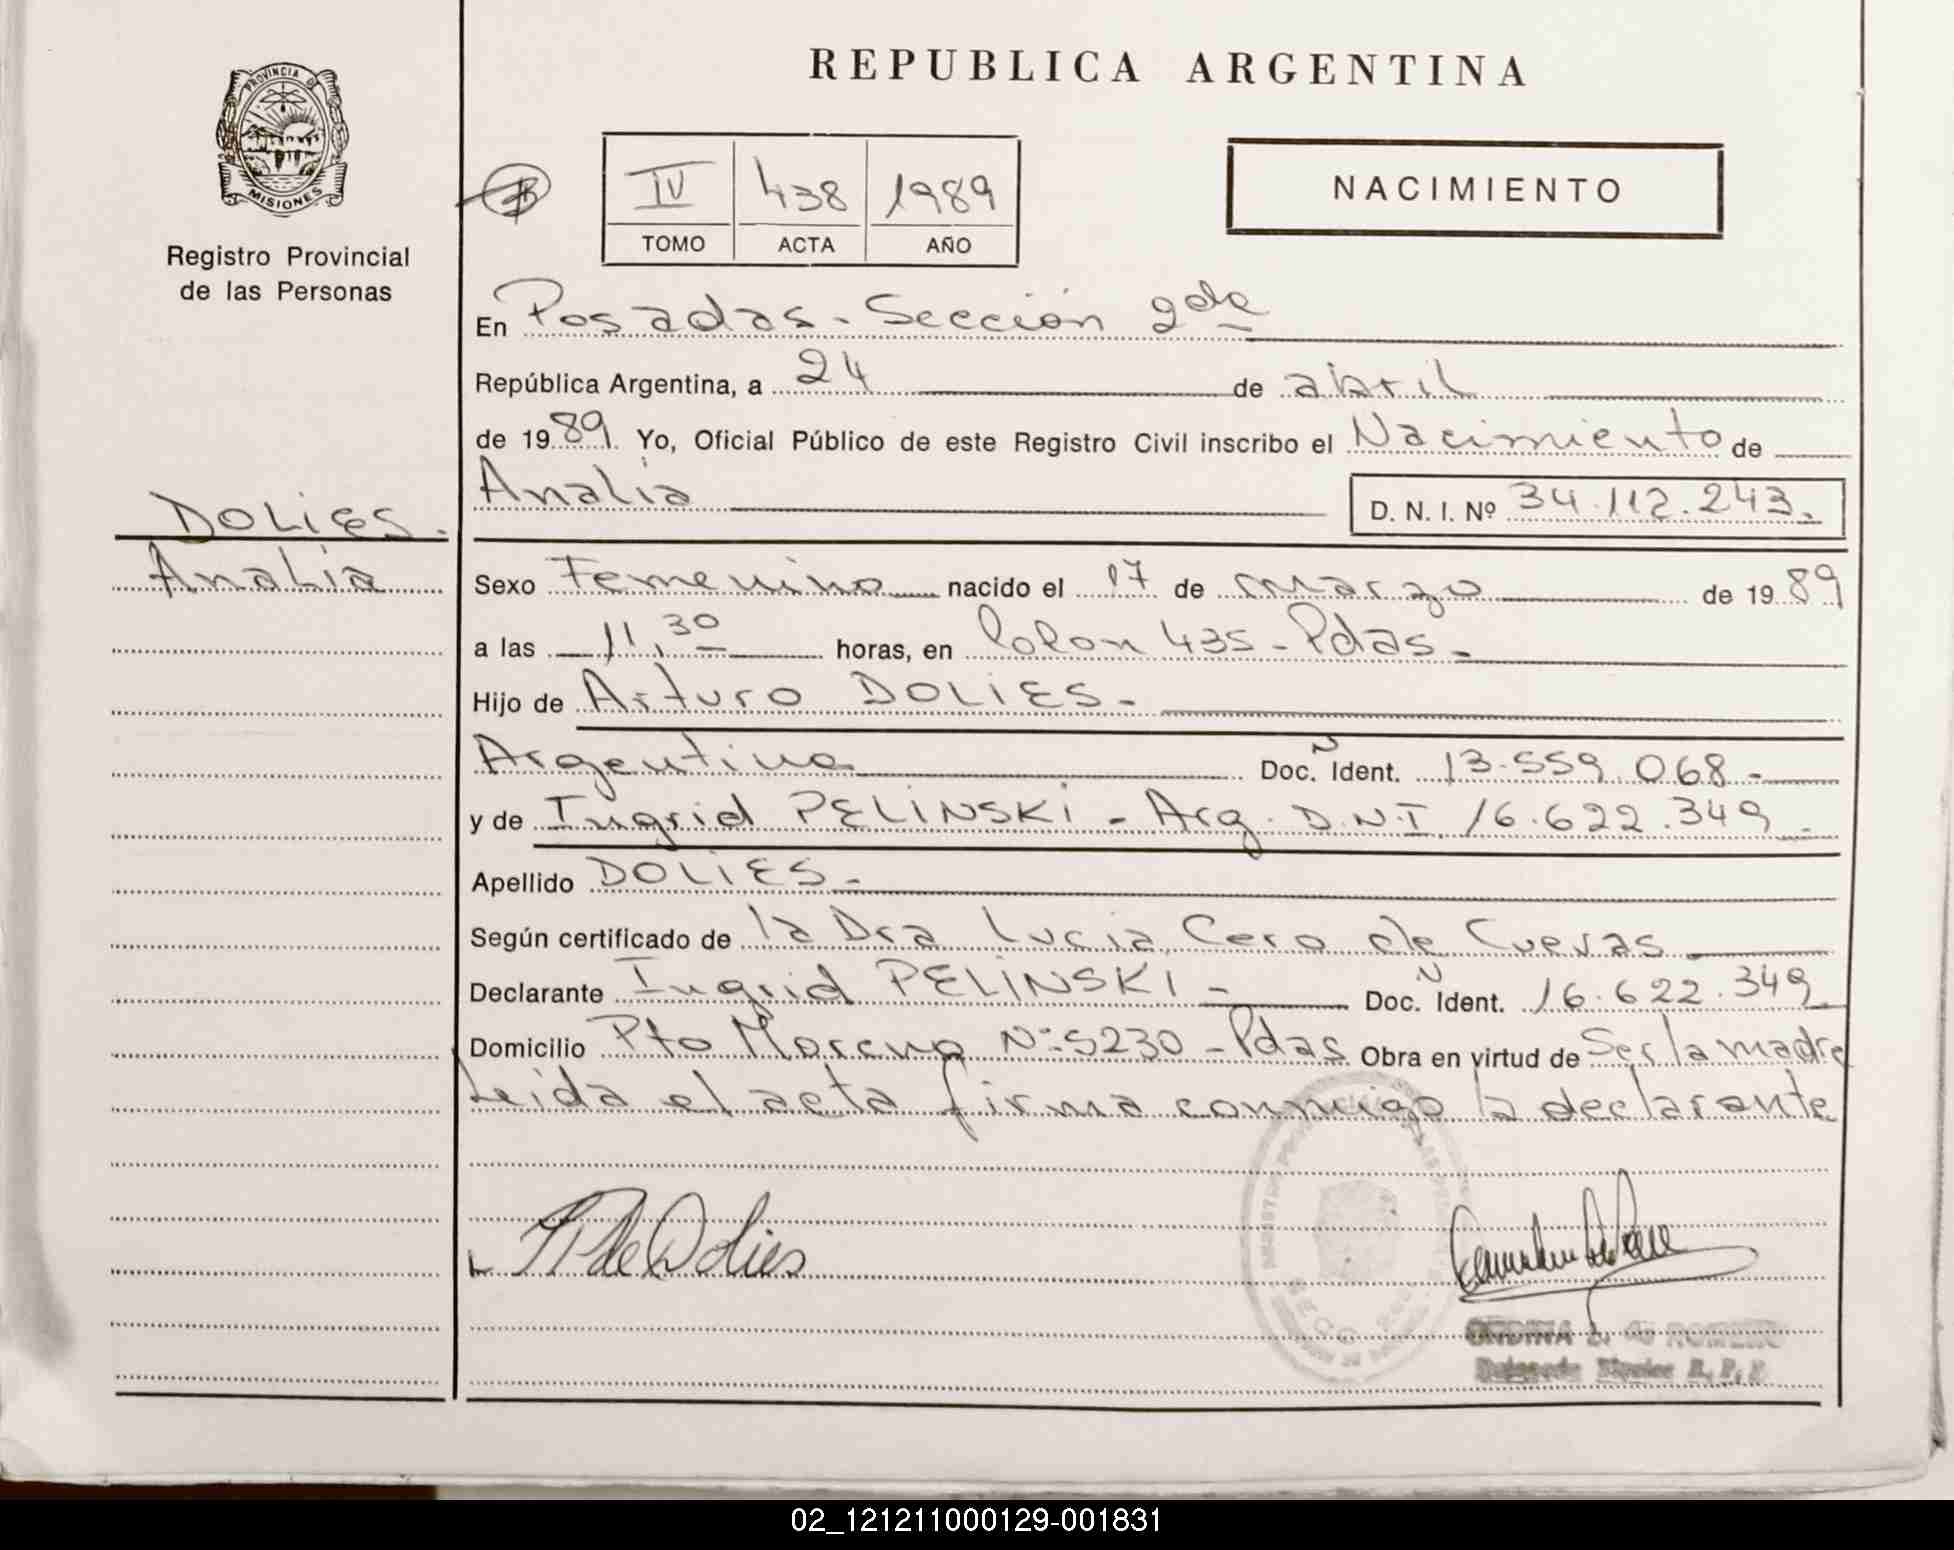 PROVINCIA DE
MISIONES
Registro Provincial
de las Personas
REPUBLICA ARGENTINA
IV 438 1989
TOMO ACTA AÑO
NACIMIENTO
En Posadas - Sección 2da
República Argentina, a 24 de abril
de 1989 Yo, Oficial Público de este Registro Civil inscribo el Nacimiento de
Analia D. N. I. Nº 34.112.243.
DOLIES.
Analia
Sexo Femenino nacido el 17 de marzo de 1989
a las 11,30 horas, en Colon 435 - Pdas.
Hijo de Arturo DOLIES -
Argentino Doc. Ident. 13.559.068 -
y de Ingrid PELINSKI - Arg. D.N.I. 16.622.349 -
Apellido DOLIES -
Según certificado de la Dra Lucia Cero de Cuevas
Declarante Ingrid PELINSKI - Doc. Ident. 16.622.349
Domicilio Pto Moreno Nº 5230 - Pdas Obra en virtud de Ser la madre
Leida el acta firma conmigo la declarante
IP de Dolies
ONDINA de ROMERO
02_121211000129-001831